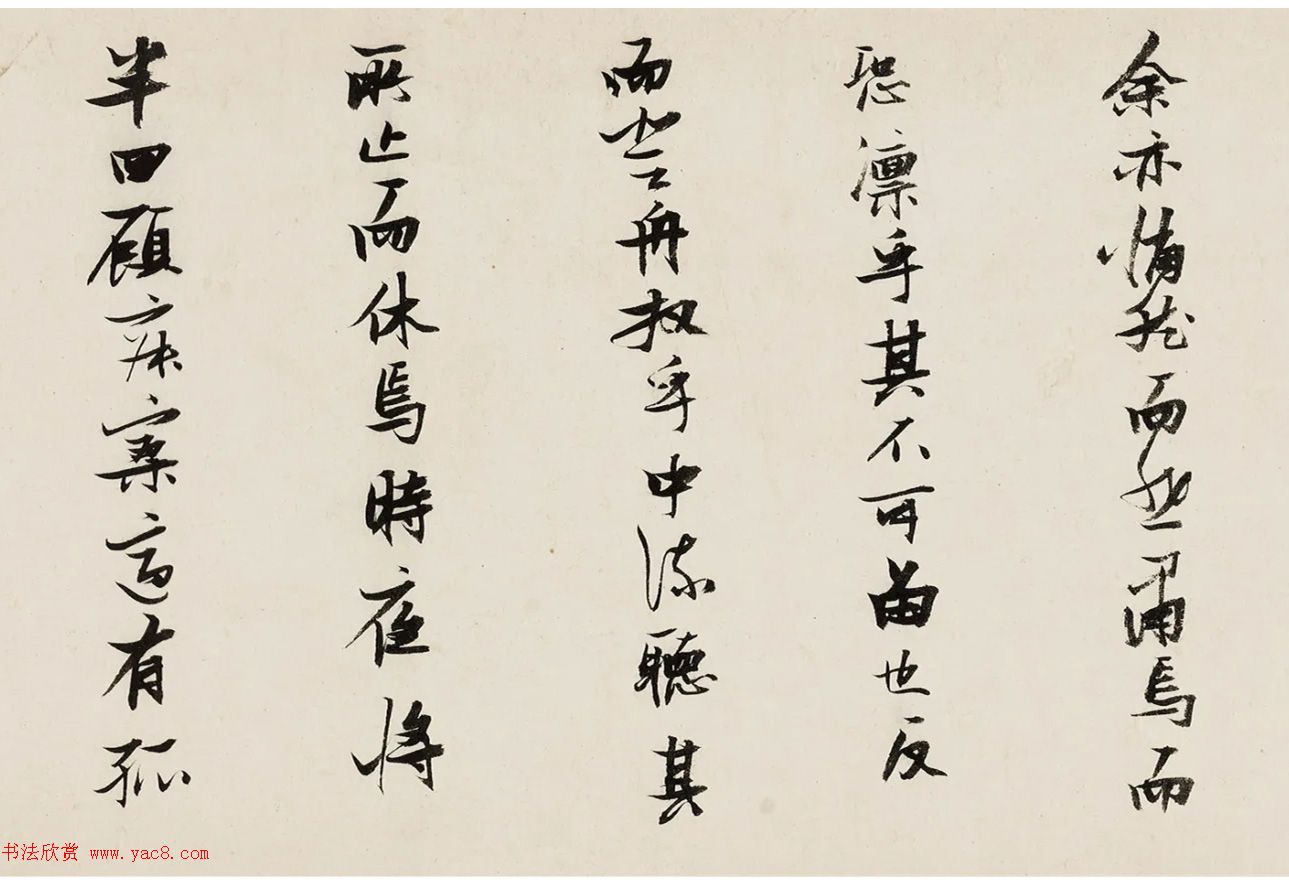 余亦悄然而悲肅焉而
恐凛乎其不可留也反
而登舟放乎中流聽其
所止而休焉時夜將
半四顧寂寥適有孤
书法欣赏 www.yac8.com